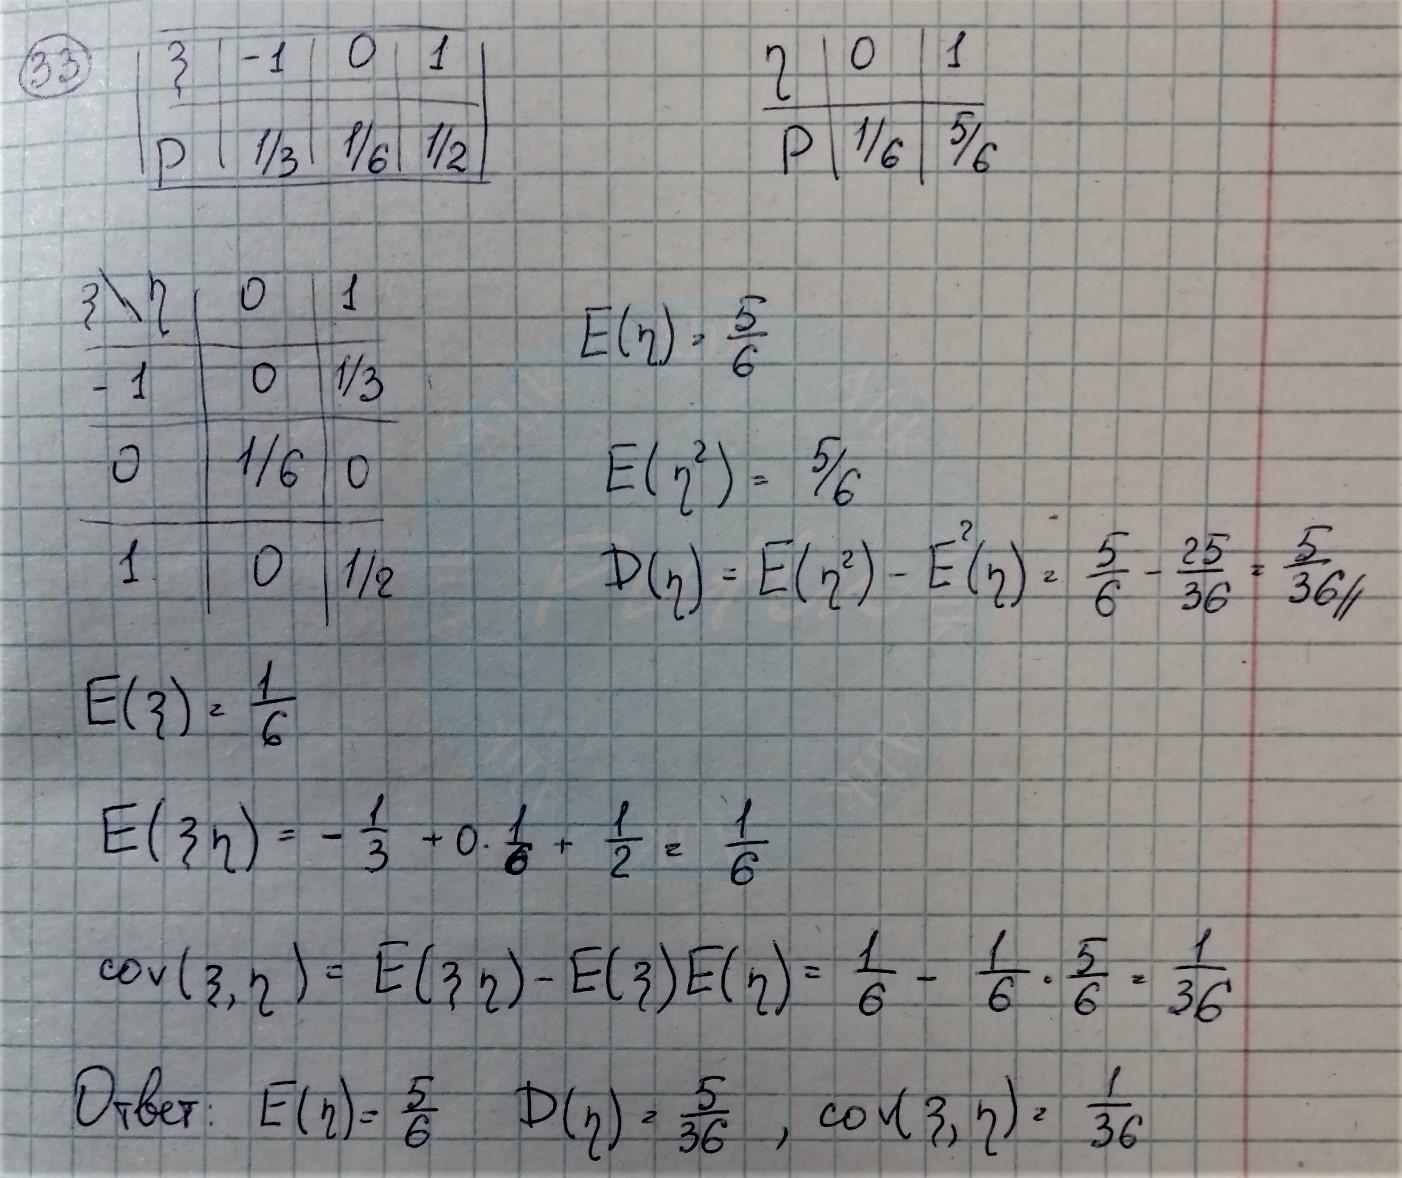 33
ξ | -1 | 0 | 1
P | 1/3 | 1/6 | 1/2
η | 0 | 1
P | 1/6 | 5/6
ξ\η | 0 | 1
-1 | 0 | 1/3
0 | 1/6 | 0
1 | 0 | 1/2
E(η) = 5/6
E(η²) = 5/6
D(η) = E(η²) - E²(η) = 5/6 - 25/36 = 5/36 //
E(ξ) = 1/6
E(ξη) = - 1/3 + 0 · 1/6 + 1/2 = 1/6
cov(ξ, η) = E(ξη) - E(ξ)E(η) = 1/6 - 1/6 · 5/6 = 1/36
Ответ: E(η) = 5/6 D(η) = 5/36 , cov(ξ, η) = 1/36
Alik
Alik
Alik
Alik